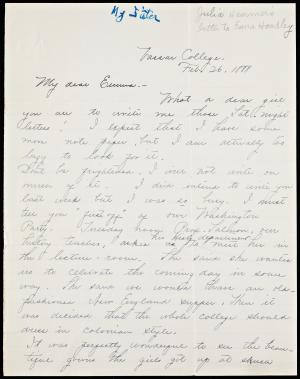 My Sister
Julia
letter to Emma Hoadley
Vassar College.
Feb. 26, 18
My dear Emma:-
What a dear girl
you are to write me those Sat. night
letters! I expect that I have some
more note paper, but I am actually too
lazy to look for it.
Don't be frightened. I will not write on
much of it. - I did intend to write you
last week but I was so busy. I must
tell you "first off" of our Washington
Party. Tuesday noon, Miss Salmon, our
history teacher, asked us to meet her in
the lecture-room. She said she wanted
us to celebrate the coming day in some
way. She said we would have an old
fashioned New England supper. Then it
was decided that the whole college should
dress in colonial style.
It was perfectly wonderful to see the beau-
tiful gowns the girls got up at